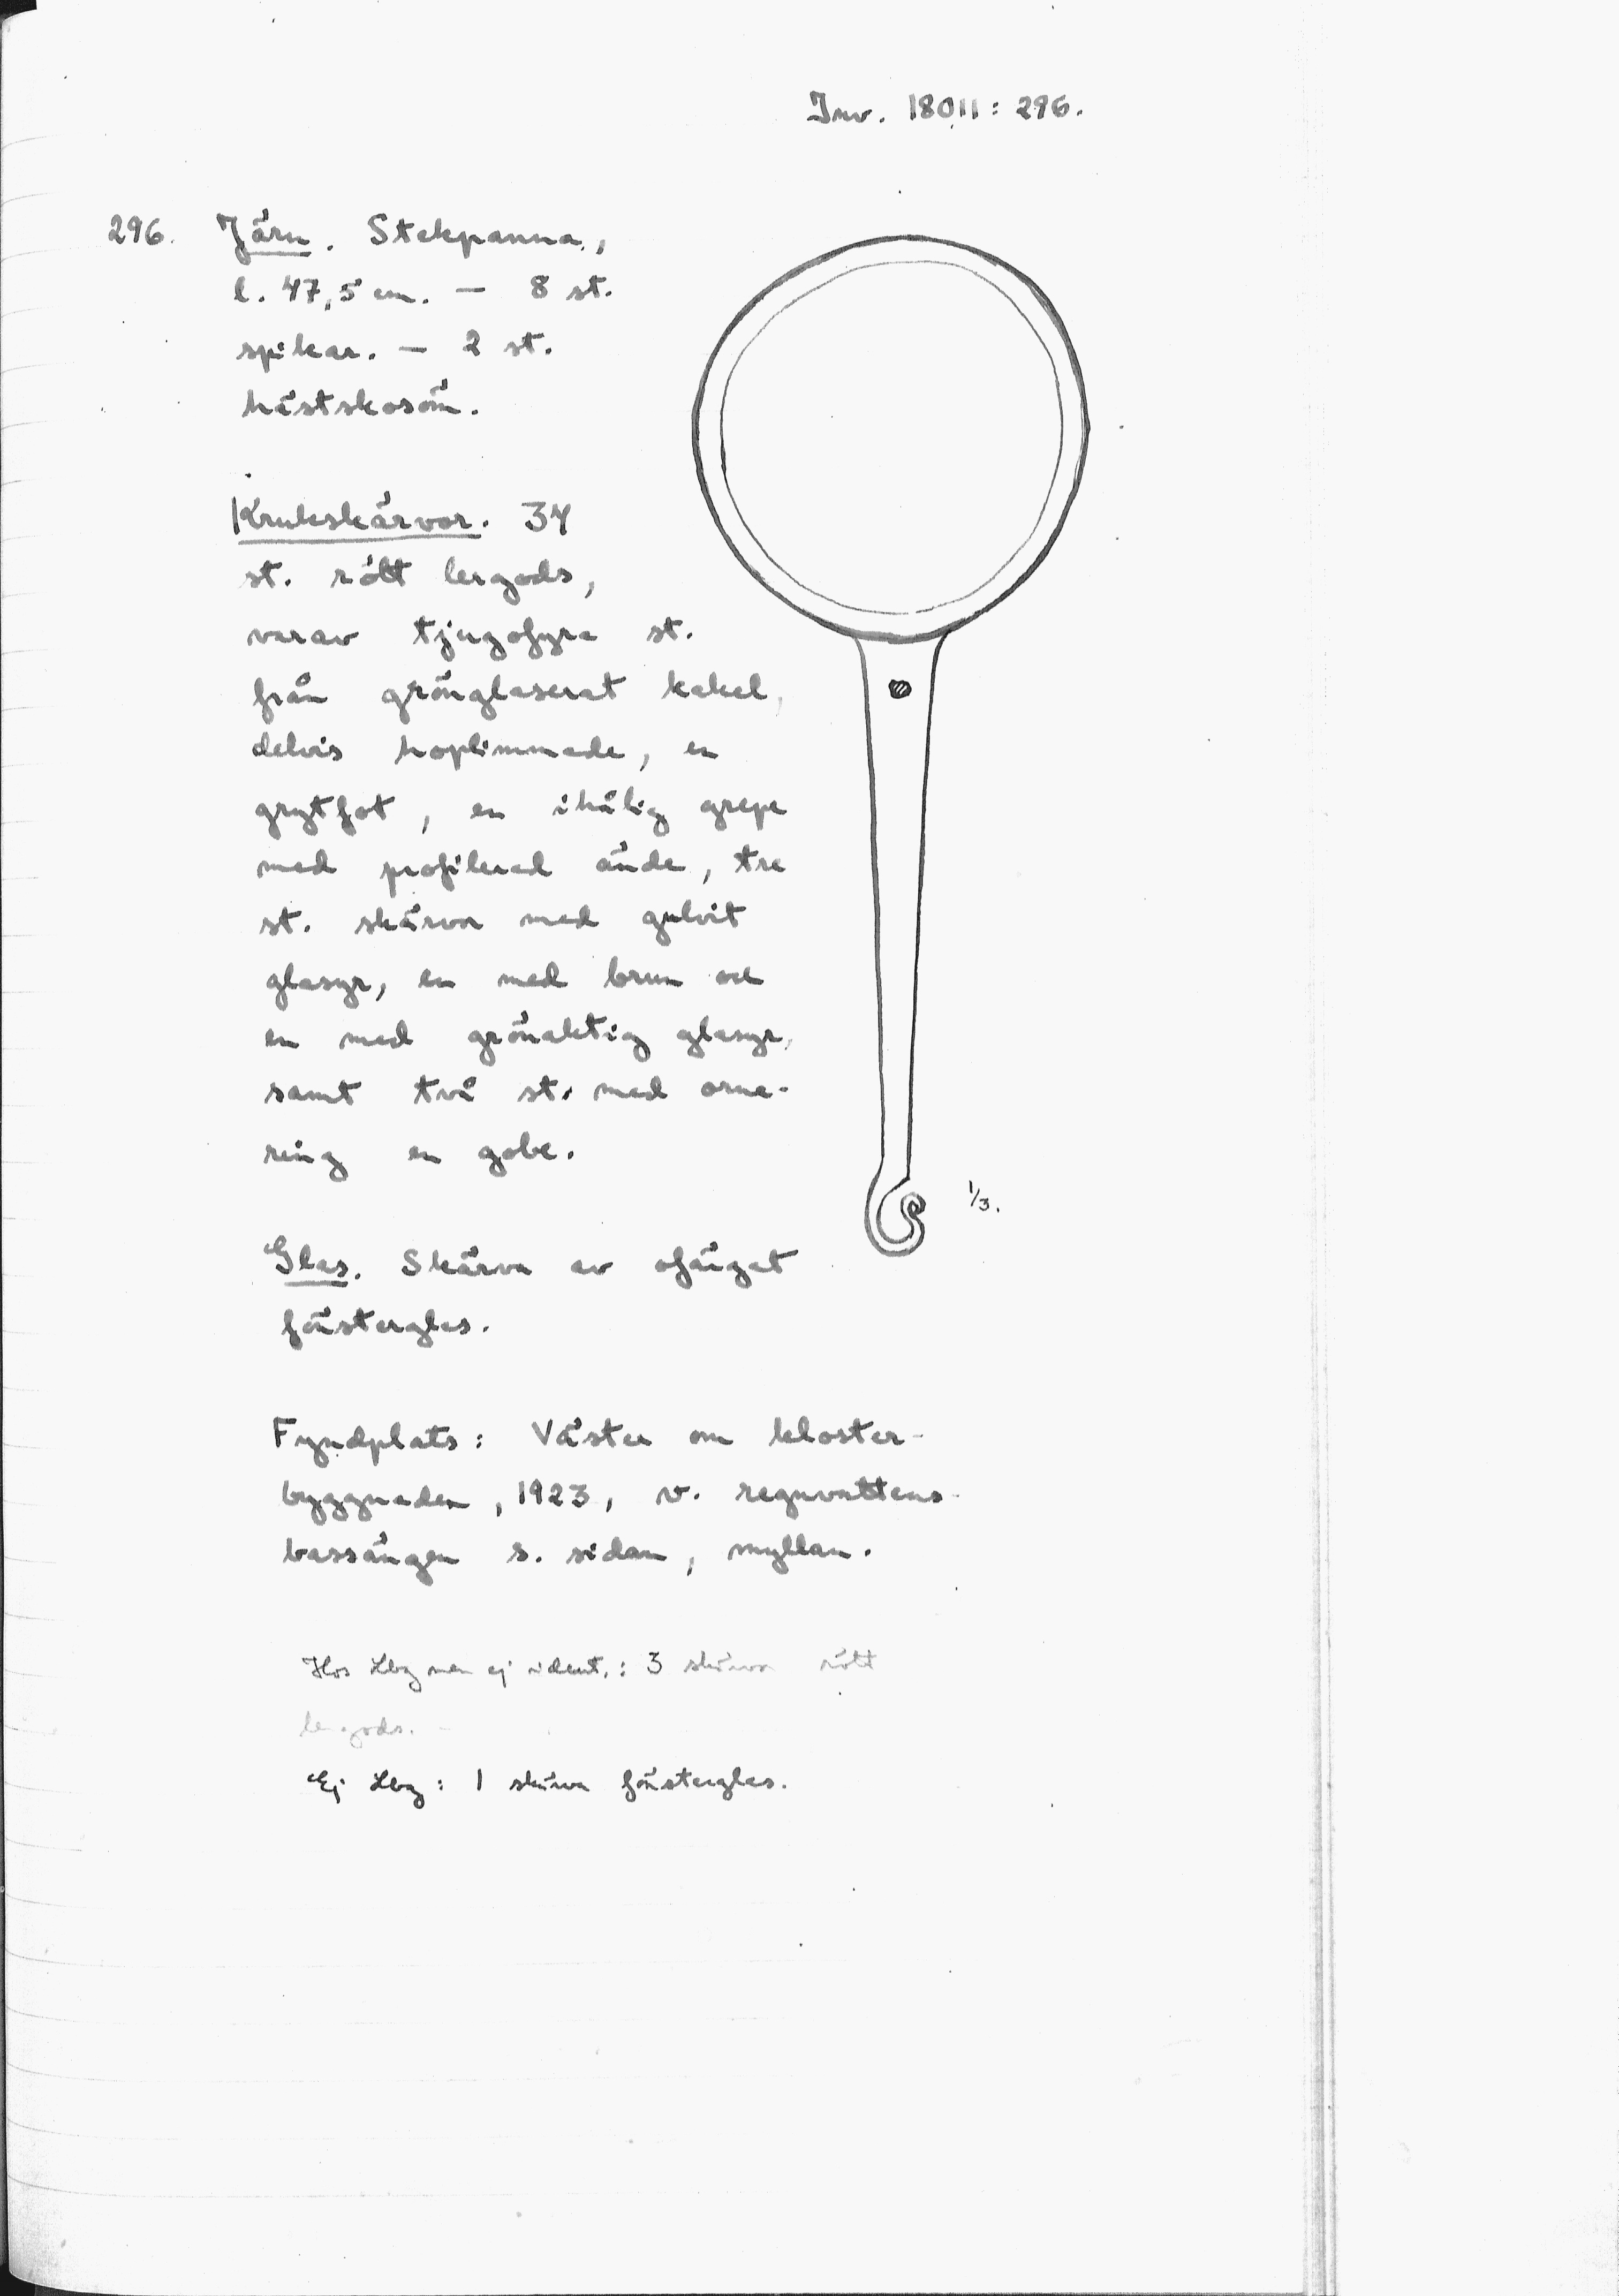 Inv. 18011: 296.
296. Järn. Stekpanna,
l. 47,5 cm. — 8 st.
spikar. — 2 st.
hästskosöm.
Krukskärvor. 34
st. rött lergods,
varav tjugofyra st.
från grönglaserat kakel,
delvis hoplimmade, en
grytfot, en ihålig grepe
med profilerad ände, tre
st. skärvor med gulvit
glasyr, en med brun och
en med grönaktig glasyr,
samt två st. med orne-
ring en gobe.
Glas. Skärva av ofärgat
fönsterglas.
Fyndplats: Väster om kloster-
byggnaden, 1923, v. regnvattens-
bassängen s. sidan, myllan.
Hos Lbg men ej ident.: 3 skärvor rött
lergods.
Ej Lbg: 1 skärva fönsterglas.
1/3.